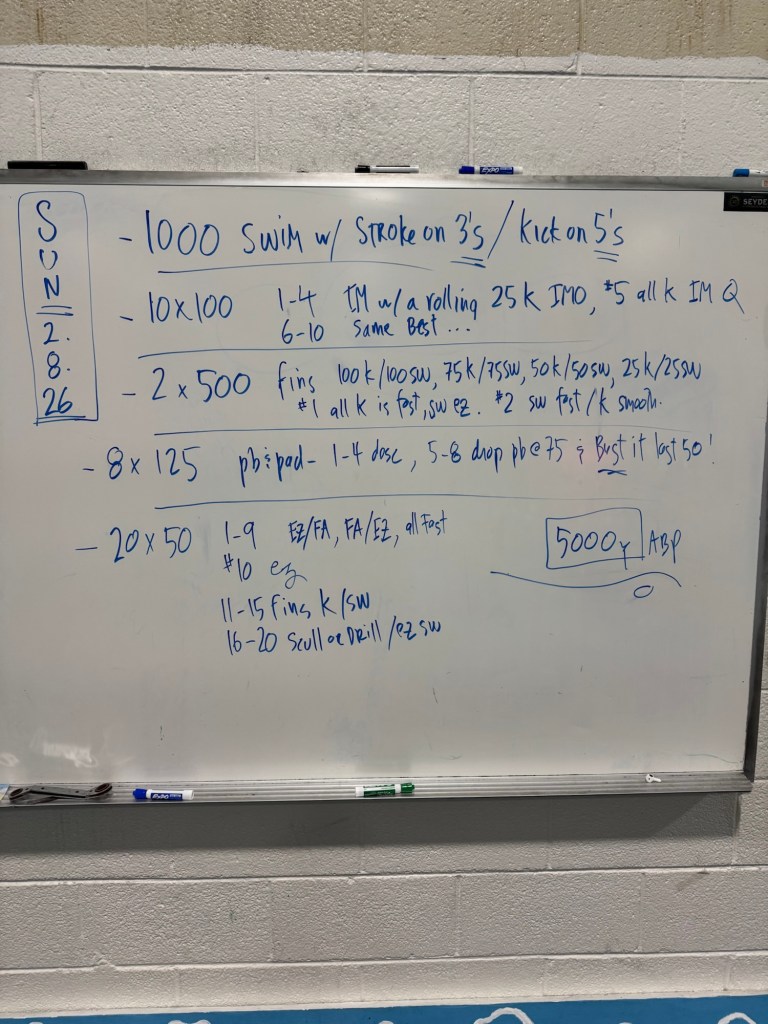 SUN
2.
8.
26
- 1000 SWIM w/ STROKE on 3's / Kick on 5's
- 10x100 1-4 IM w/ a rolling 25 k IMO, #5 all k IM Q
6-10 Same Best ...
- 2 x 500 fins 100k/100sw, 75k/75sw, 50k/50sw, 25k/25sw
#1 all k is fast, sw ez. #2 sw fast / k smooth.
- 8 x 125 pb & pad - 1-4 desc, 5-8 drop pb @ 75 & Bust it last 50!
- 20 x 50 1-9 EZ/FA, FA/EZ, all Fast
#10 ez
11-15 fins k/sw
16-20 Scull or Drill / ez sw
5000y ABP
EXPO
SEYDE
EXPO